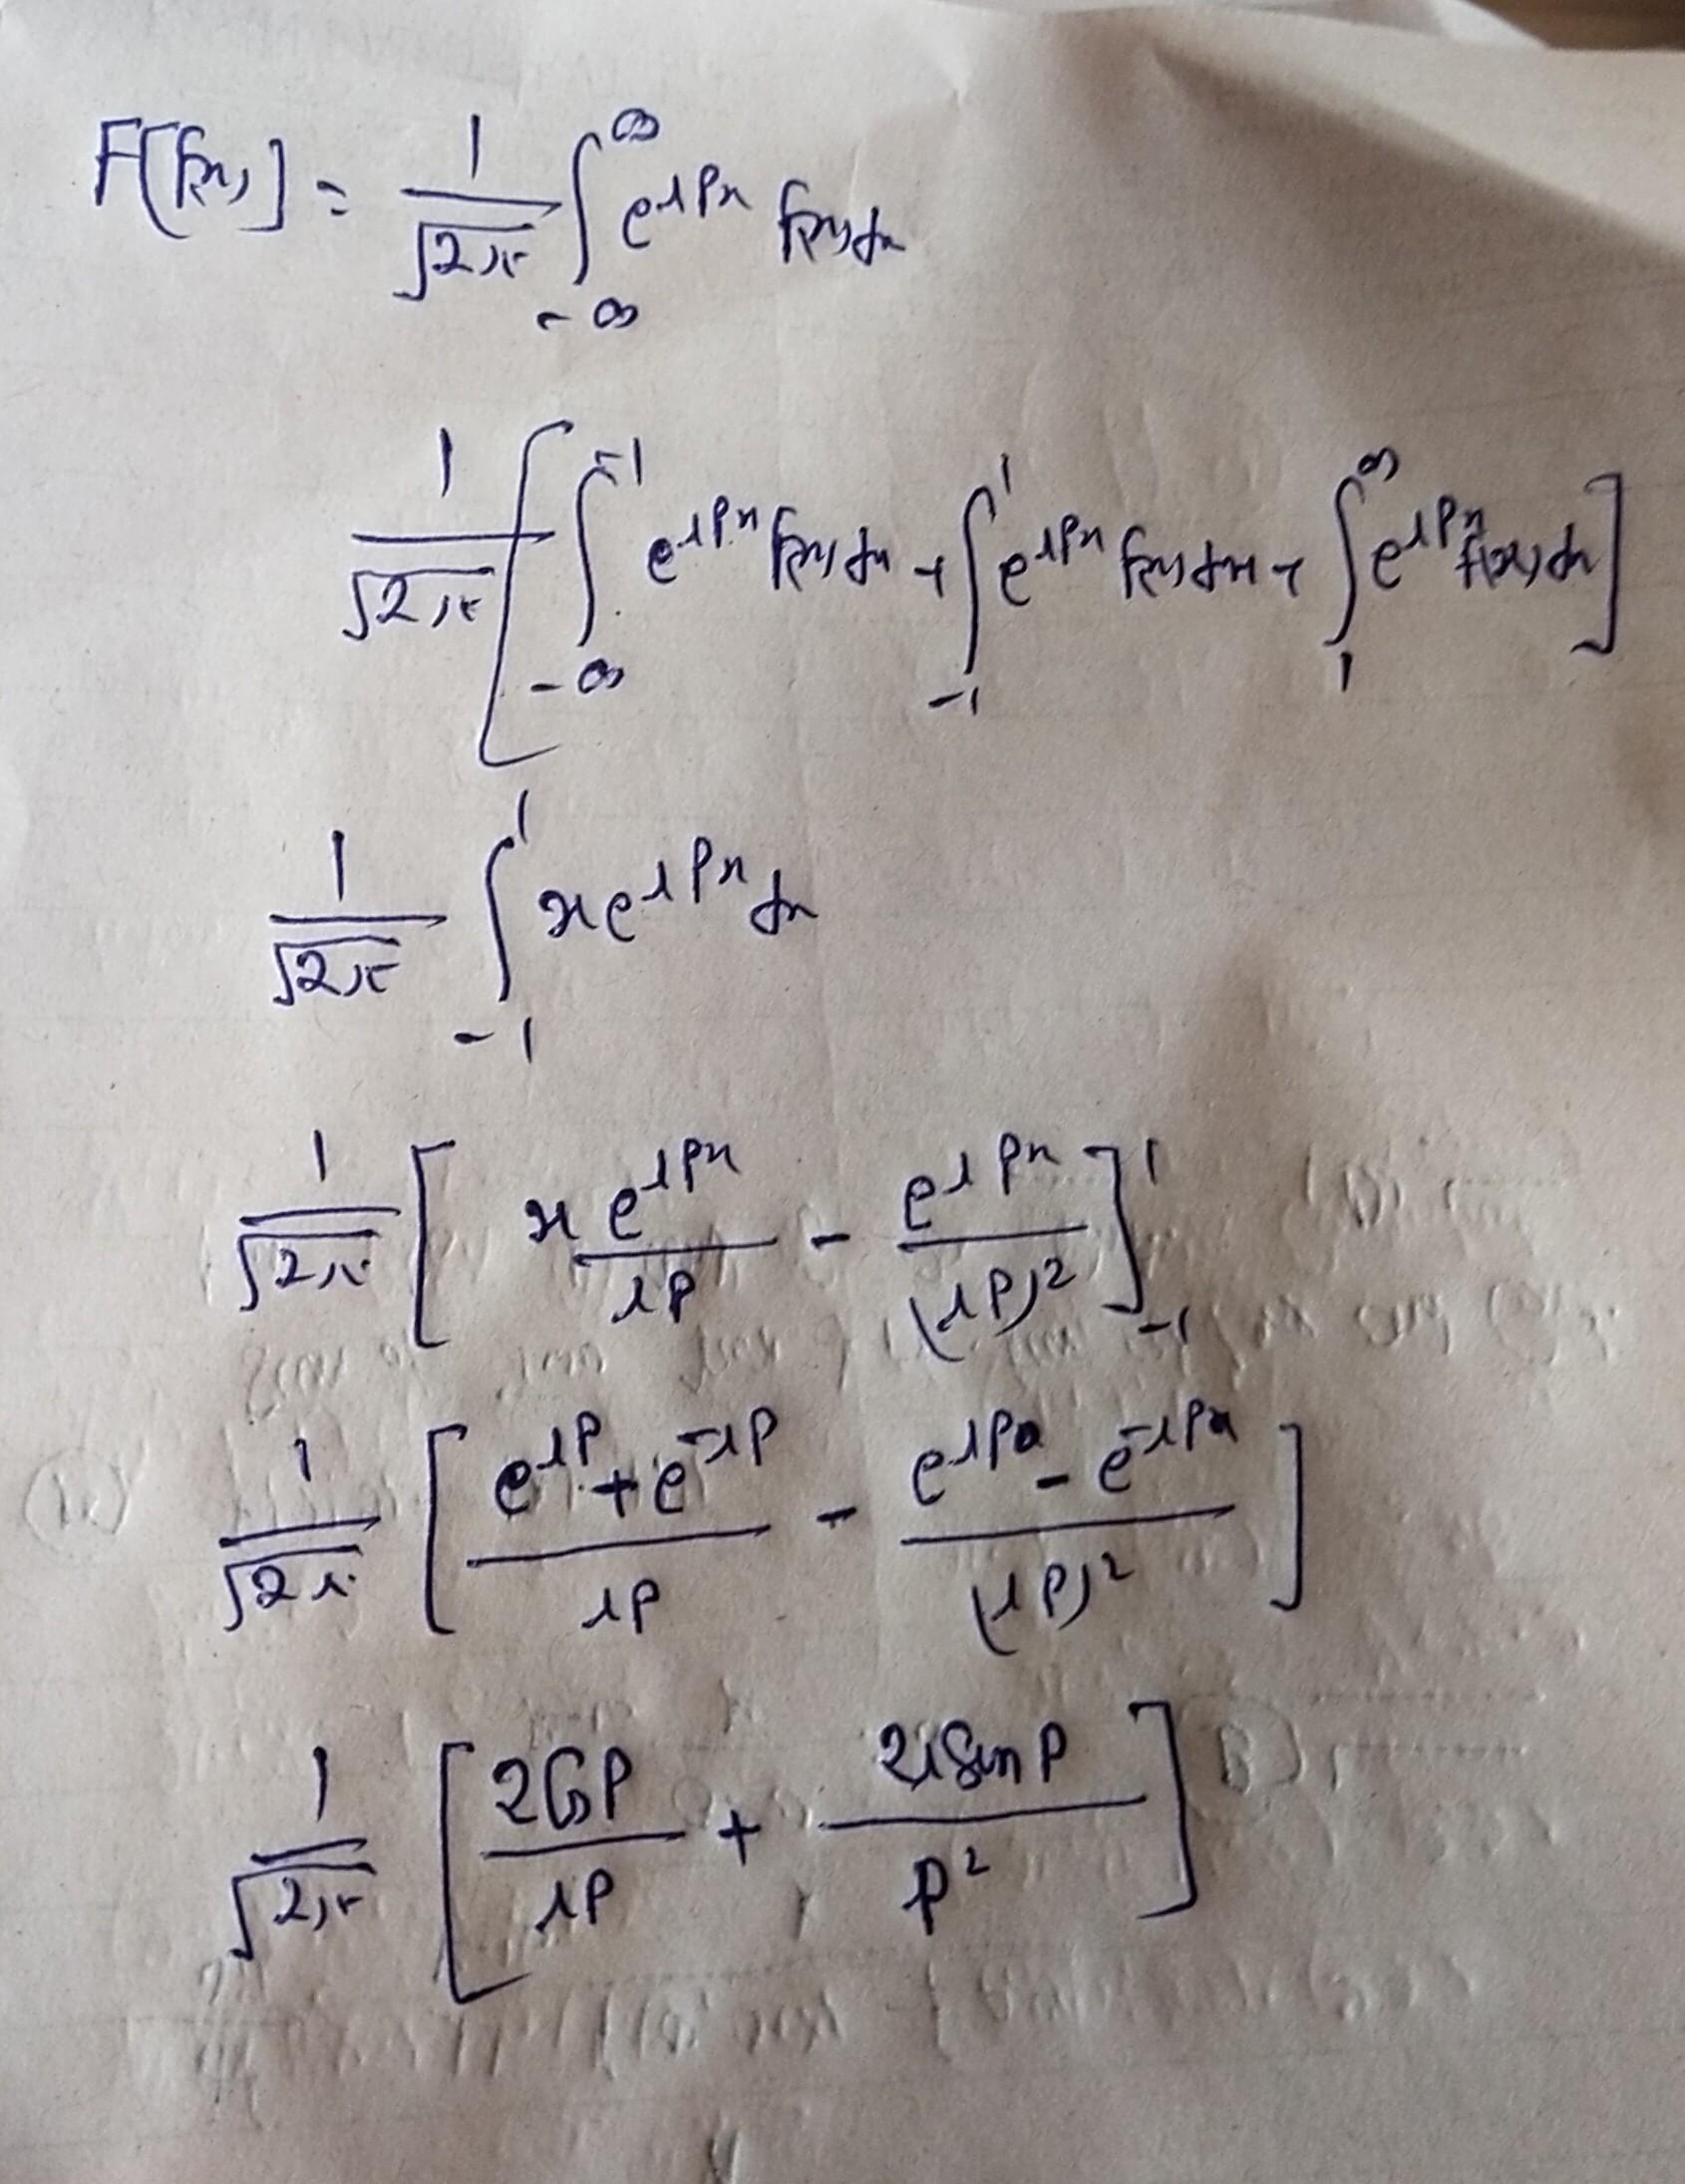 F[f(x)] = 1/√2π ∫_{-∞}^{∞} e^{ipx} f(x) dx
1/√2π [ ∫_{-∞}^{-1} e^{ipx} f(x) dx + ∫_{-1}^{1} e^{ipx} f(x) dx + ∫_{1}^{∞} e^{ipx} f(x) dx ]
1/√2π ∫_{-1}^{1} x e^{ipx} dx
1/√2π [ x e^{ipx}/ip - e^{ipx}/(ip)² ]_{-1}^{1}
1/√2π [ (e^{ip} + e^{-ip})/ip - (e^{ip} - e^{-ip})/(ip)² ]
1/√2π [ 2Cos P/ip + 2i Sin P/p² ]